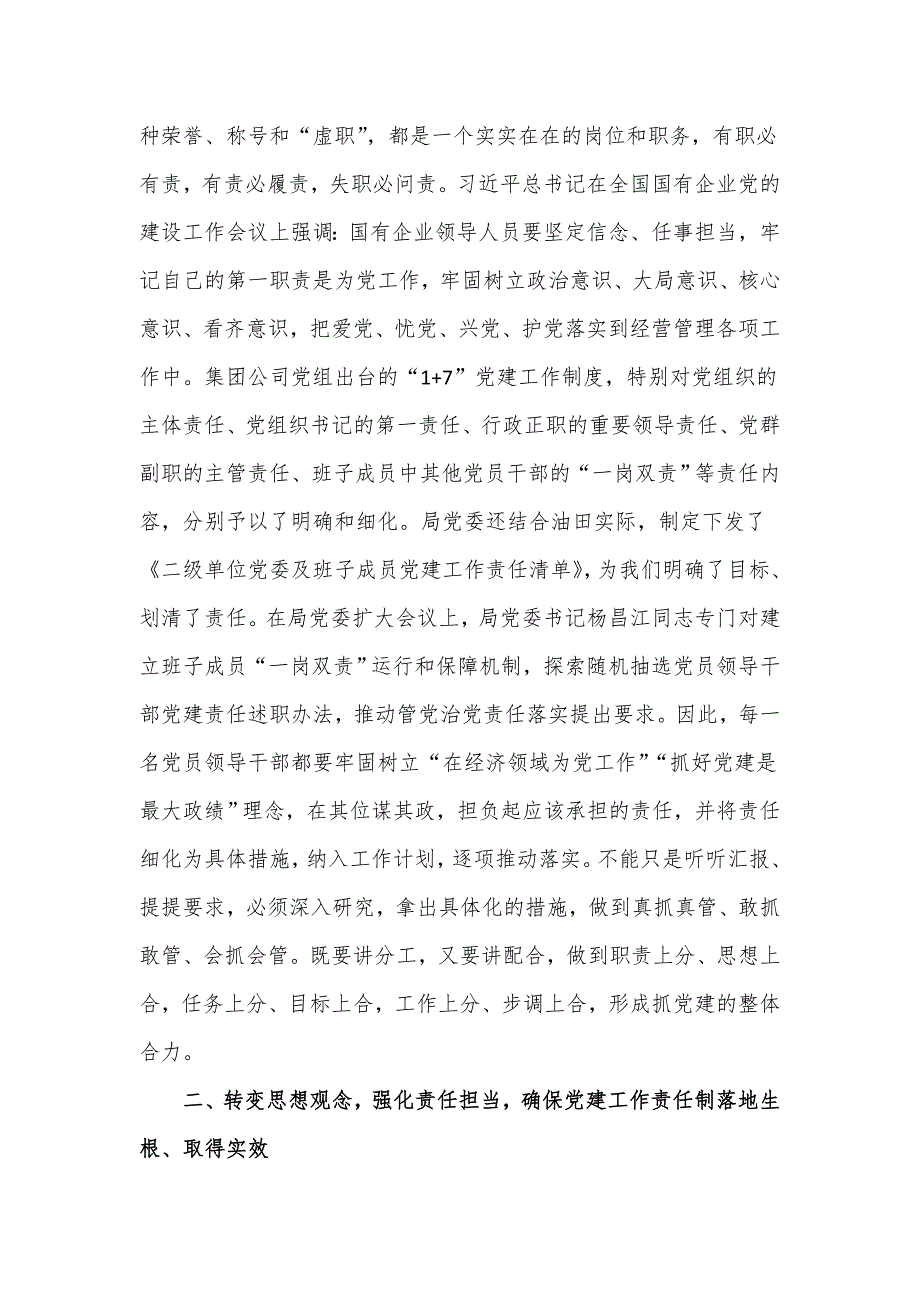 种荣誉、称号和“虚职”，都是一个实实在在的岗位和职务，有职必
有责，有责必履责，失职必问责。习近平总书记在全国国有企业党的
建设工作会议上强调：国有企业领导人员要坚定信念、任事担当，牢
记自己的第一职责是为党工作，牢固树立政治意识、大局意识、核心
意识、看齐意识，把爱党、忧党、兴党、护党落实到经营管理各项工
作中。集团公司党组出台的“1+7”党建工作制度，特别对党组织的
主体责任、党组织书记的第一责任、行政正职的重要领导责任、党群
副职的主管责任、班子成员中其他党员干部的“一岗双责”等责任内
容，分别予以了明确和细化。局党委还结合油田实际，制定下发了
《二级单位党委及班子成员党建工作责任清单》，为我们明确了目标、
划清了责任。在局党委扩大会议上，局党委书记杨昌江同志专门对建
立班子成员“一岗双责”运行和保障机制，探索随机抽选党员领导干
部党建责任述职办法，推动管党治党责任落实提出要求。因此，每一
名党员领导干部都要牢固树立“在经济领域为党工作”“抓好党建是
最大政绩”理念，在其位谋其政，担负起应该承担的责任，并将责任
细化为具体措施，纳入工作计划，逐项推动落实。不能只是听听汇报、
提提要求，必须深入研究，拿出具体化的措施，做到真抓真管、敢抓
敢管、会抓会管。既要讲分工，又要讲配合，做到职责上分、思想上
合，任务上分、目标上合，工作上分、步调上合，形成抓党建的整体
合力。
二、转变思想观念，强化责任担当，确保党建工作责任制落地生
根、取得实效